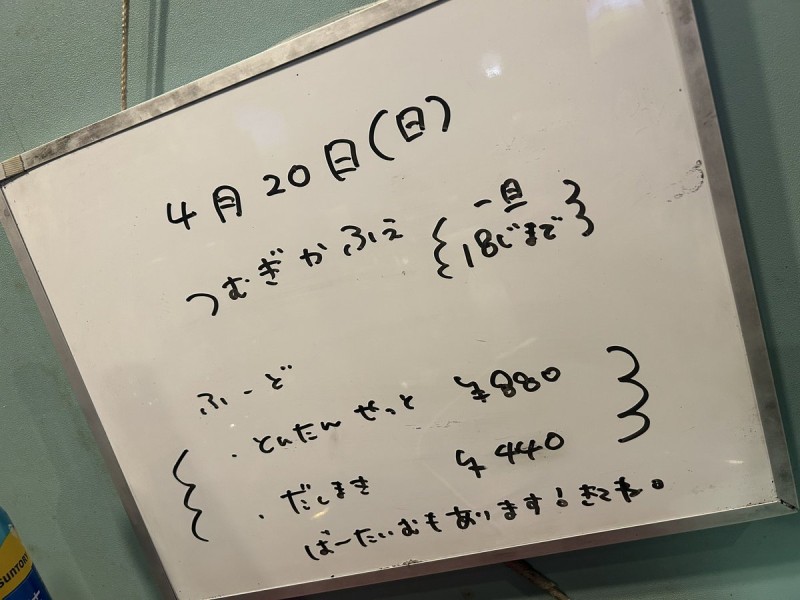 4月20日(日)
つむぎかふぇ
一旦
18じまで
ふーど
・とんたんせっと ¥880
・だしまき ¥440
ばーたいむもあります!きてね。
SUNTORY